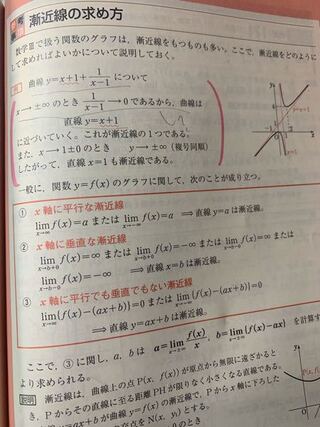 参考 漸近線の求め方
数学Ⅲで扱う関数のグラフは，漸近線をもつものも多い。ここで，漸近線をどのように
して求めればよいかについて説明しておく。
例 曲線 y=x+1+1/(x-1) について
x→±∞ のとき 1/(x-1)→0 であるから，曲線は
直線 y=x+1
に近づいていく。これが漸近線の1つである。
また，x→1±0 のとき y→±∞（複号同順）
したがって，直線 x=1 も漸近線である。
一般に，関数 y=f(x) のグラフに関して，次のことが成り立つ。
① x軸に平行な漸近線
lim[x→∞] f(x)=a または lim[x→-∞] f(x)=a ⟹ 直線 y=a は漸近線。
② x軸に垂直な漸近線
lim[x→b+0] f(x)=∞ または lim[x→b+0] f(x)=-∞ または lim[x→b-0] f(x)=∞ または
lim[x→b-0] f(x)=-∞ ⟹ 直線 x=b は漸近線。
③ x軸に平行でも垂直でもない漸近線
lim[x→∞] {f(x)-(ax+b)}=0 または lim[x→-∞] {f(x)-(ax+b)}=0
⟹ 直線 y=ax+b は漸近線。
ここで，③ に関し，a，b は a=lim[x→±∞] f(x)/x，b=lim[x→±∞] {f(x)-ax} を計算す
より求められる。
説明 漸近線は，曲線上の点 P(x, f(x)) が原点から無限に遠ざかると
き，P からその直線に至る距離 PH が限りなく小さくなる直線である。